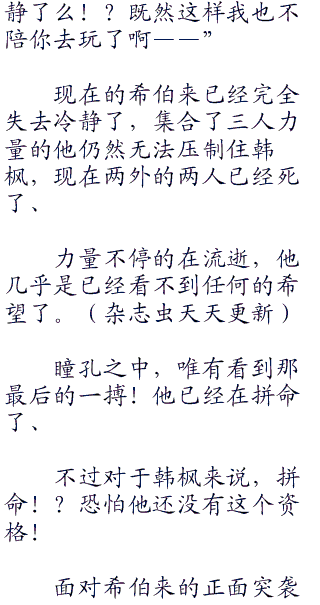 静了么！？既然这样我也不
陪你去玩了啊——”
现在的希伯来已经完全
失去冷静了，集合了三人力
量的他仍然无法压制住韩
枫，现在两外的两人已经死
了、
力量不停的在流逝，他
几乎是已经看不到任何的希
望了。（杂志虫天天更新）
瞳孔之中，唯有看到那
最后的一搏！他已经在拼命
了、
不过对于韩枫来说，拼
命！？恐怕他还没有这个资
格！
面对希伯来的正面突袭